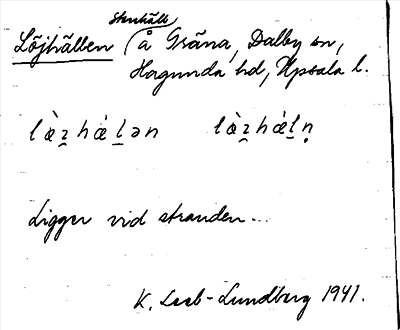 Stenhäll
Löjhällen (å Gräna, Dalby sn,
Hagunda hd, Upsala l.
lœ̀z̲hæ̀l̲ən lœ̀z̲hæ̀l̲ṇ
Ligger vid stranden...
K. Leeb-Lundberg 1941.